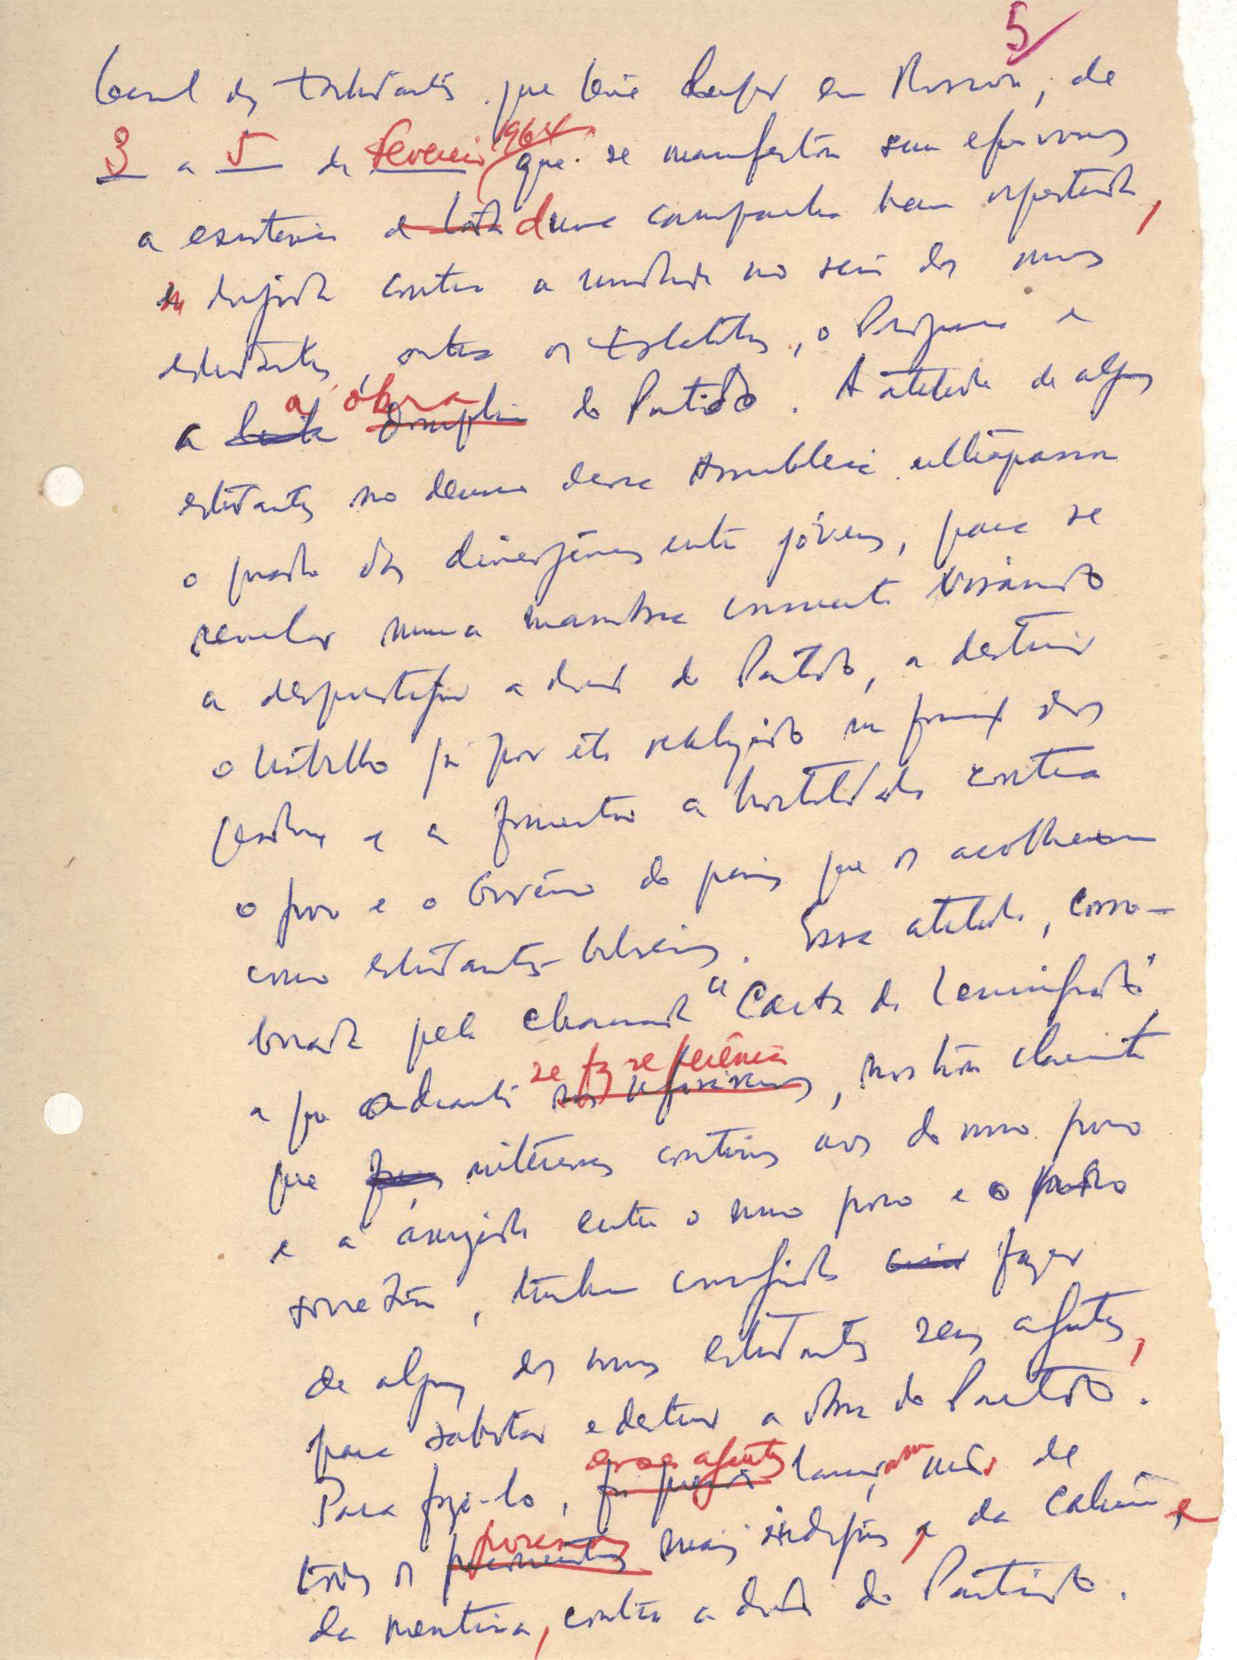 5
Geral dos Estudantes que teve lugar em Moscovo, de
3 a 5 de fevereiro 1964 que se manifestou sem equívocos
a existência duma campanha bem orquestrada,
dirigida contra a unidade no seio dos nossos
estudantes, contra os Estatutos, o Programa e
a obra do Partido. A atitude de alguns
estudantes no decurso dessa Assembleia ultrapassa
o quadro das divergências entre jóvens, para se
revelar numa manobra consciente visando
a desprestigiar a direcção do Partido, a destruir
o trabalho já por ele realizado na formação dos
quadros e a fomentar a hostilidade contra
o povo e o Govêrno do país que os acolheram
como estudantes-bolseiros. Essa atitude, corro-
borada pela chamada "Carta de Leninegrado"
a que adiante se faz referência, mostra claramente
que interesses contrários aos do nosso povo
e à amizade entre o nosso povo e o povo
soviético, tenham conseguido fazer
de alguns dos nossos estudantes seus agentes,
para sabotar e destruir a obra do Partido.
Para fazê-lo, esses agentes lançaram mão de
todos os processos mais indignos, da calúnia e
da mentira, contra a direcção do Partido.